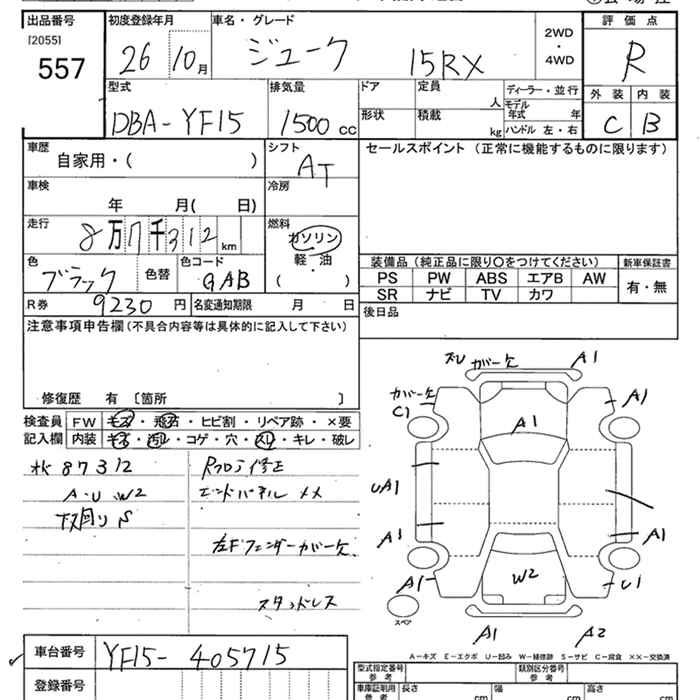 出品番号
[2055]
557
初度登録年月
26 10月
車名・グレード
ジューク 15RX
2WD
・
4WD
評価点
R
外装 内装
C B
型式
DBA-YF15
排気量
1500cc
ドア
形状
定員
人
積載
kg
ディーラー・並行
モデル
年式 年
ハンドル 左・右
車歴
自家用・( )
シフト
AT
セールスポイント (正常に機能するものに限ります)
車検
年 月( 日)
冷房
走行
8万7千312km
燃料
ガソリン
軽・油
( )
色
ブラック
色替
色コード
GAB
装備品(純正品に限り〇をつけてください)
新車保証書
PS PW ABS エアB AW
SR ナビ TV カワ
有・無
R券 9230円
名変通知期限 月 日
後日品
注意事項申告欄(不具合内容等は具体的に記入して下さい)
修復歴 有 〔箇所 〕
検査員
記入欄
FW キズ・飛石・ヒビ割・リペア跡・×要
内装 キズ・汚レ・コゲ・穴・スレ・キレ・破レ
87312
A・U W2
下廻りS
Rフロア修正
エンドパネル XX
左Fフェンダーカバー欠
スタッドレス
ズレ カバー欠 A1
カバー欠
C1
A1
A1
UA1
A1
A1
A1
W2
U1
スペア
A1
A2
A-キズ E-エクボ U-凹み W-補修跡 S-サビ C-腐食 XX-交換済
車台番号
YF15-405715
登録番号
型式指定番号
参考
類別区分番号
参考
車庫証明用
参考
長さ cm
幅 cm
高さ cm